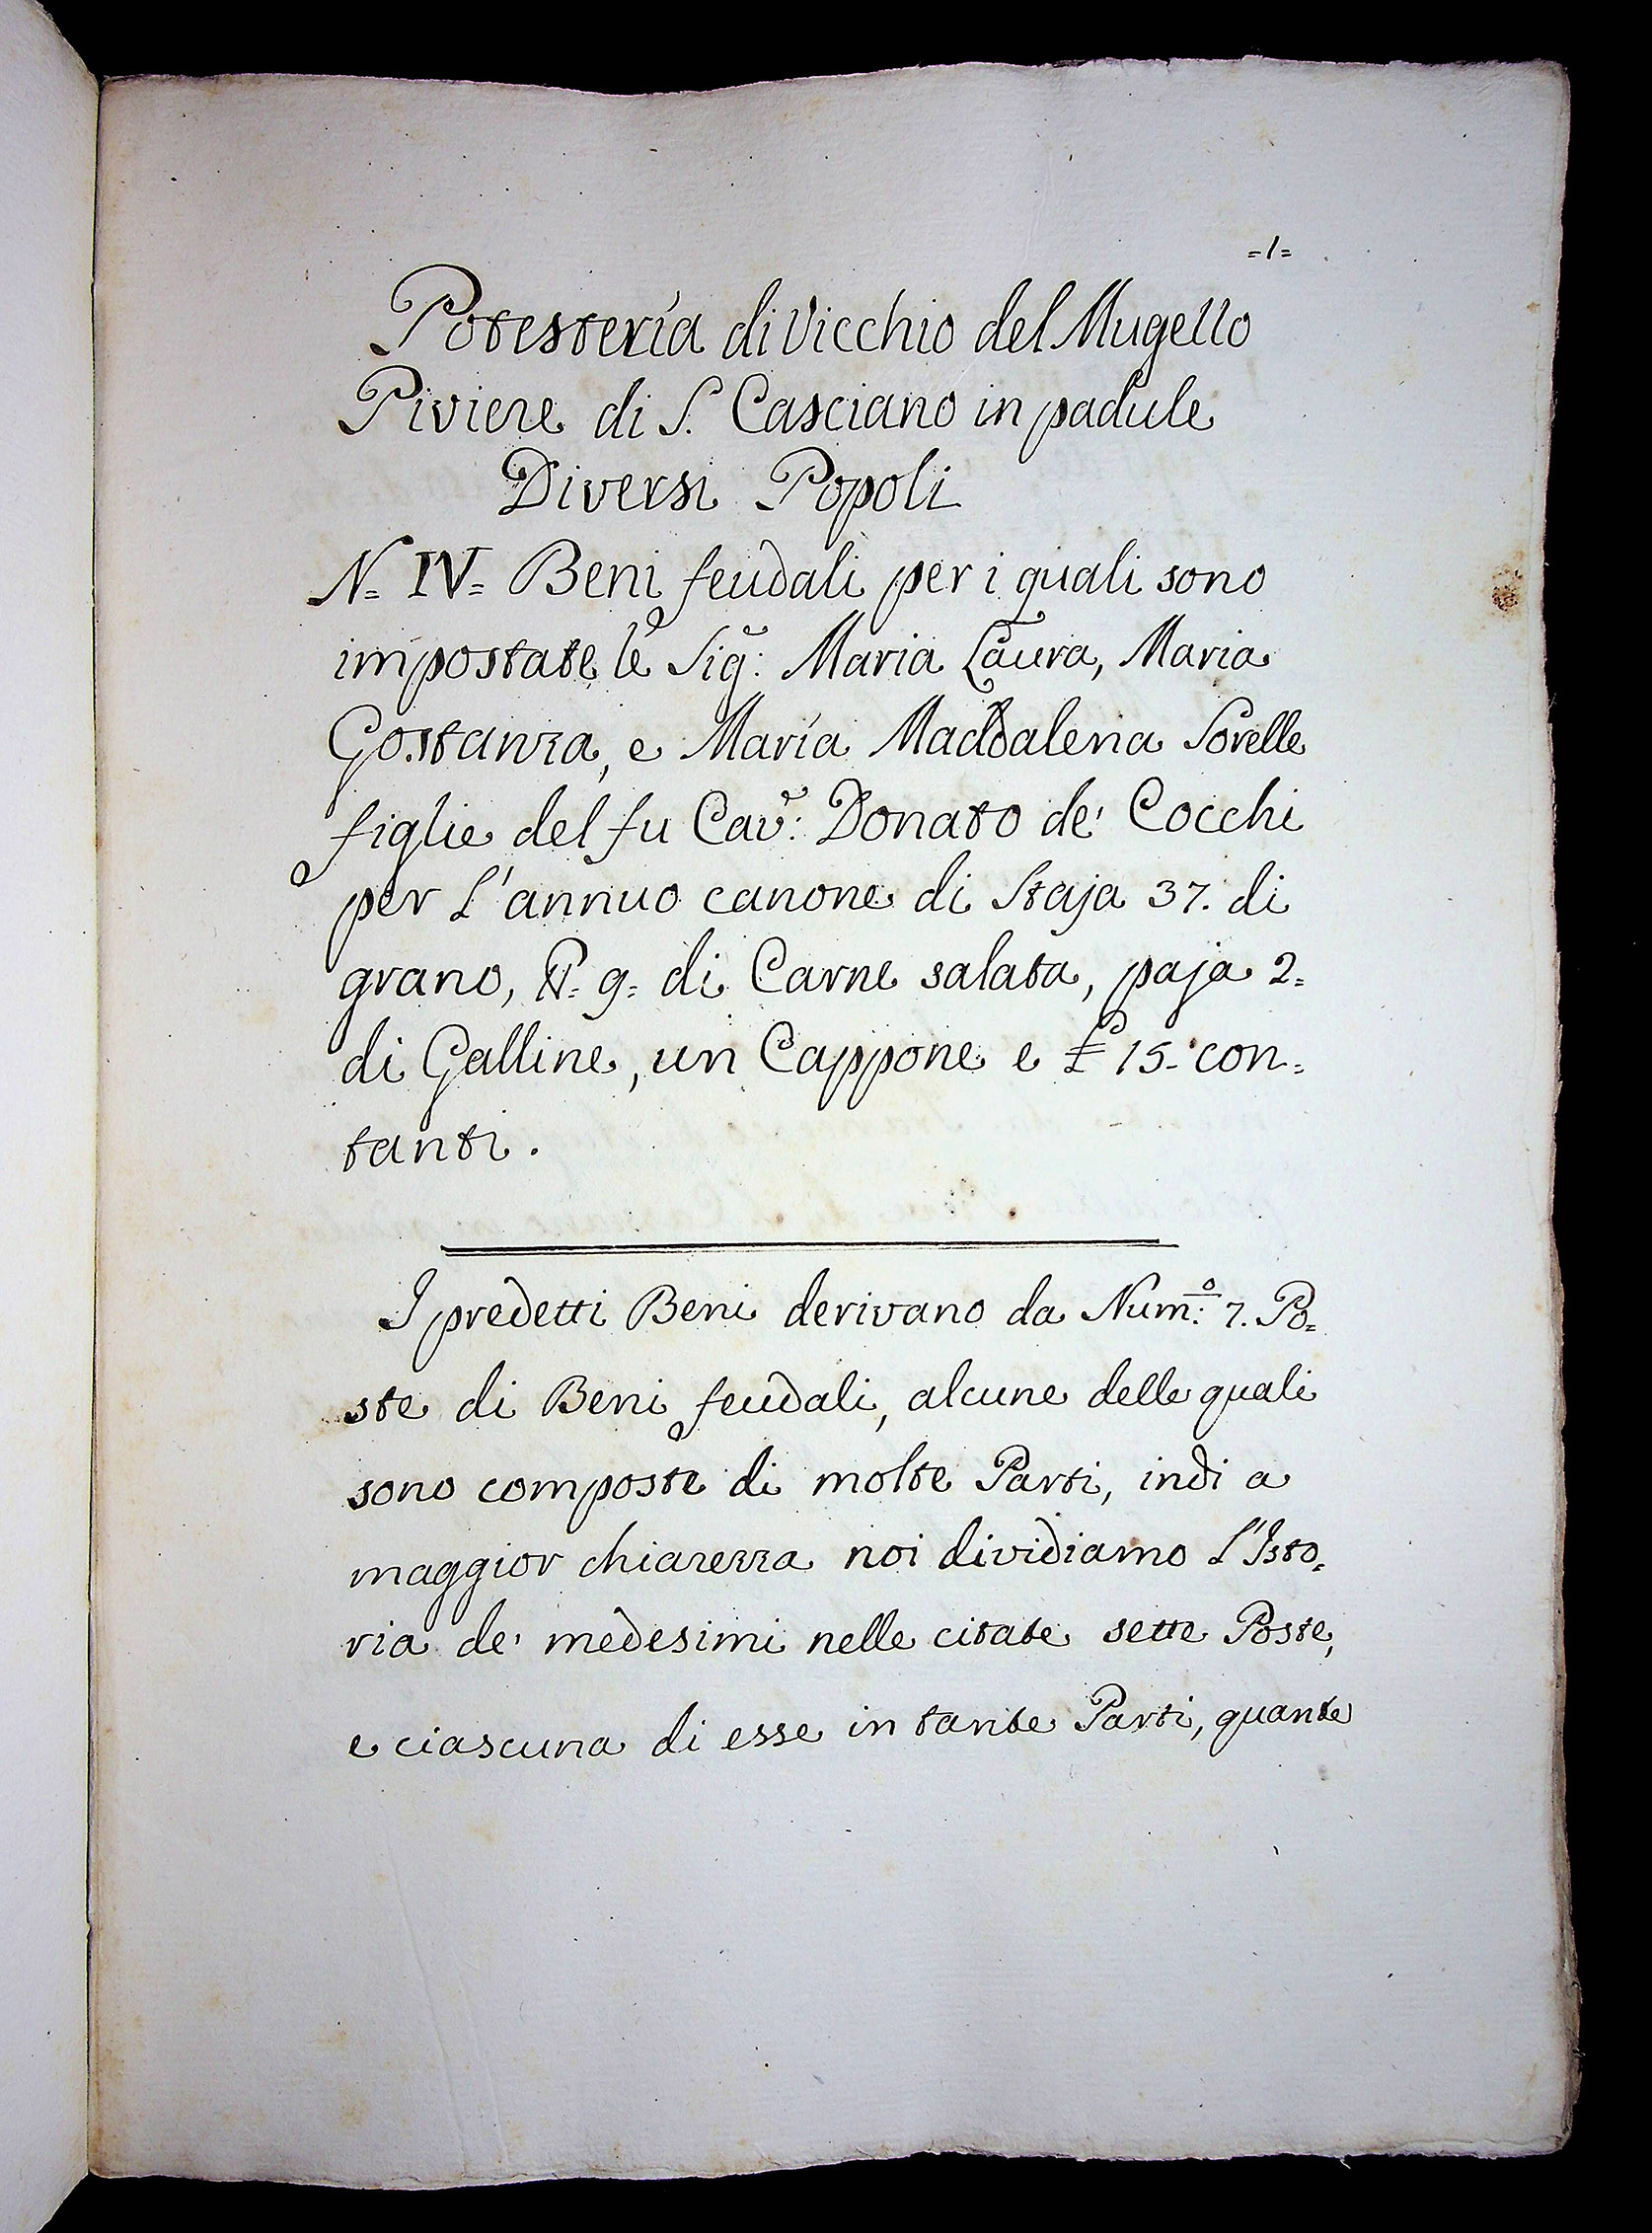 =1=
Potesteria di Vicchio del Mugello
Piviere di S. Casciano in padule
Diversi Popoli
N= IV= Beni feudali per i quali sono
impostate le Sig: Maria Laura, Maria
Gostanza, e Maria Maddalena Sorelle
figlie del fu Cav: Donato de' Cocchi
per l'annuo canone di Staja 37. di
grano, 9= di Carne salata, paja 2=
di Galline, un Cappone e £ 15- con=
tanti.
I predetti Beni derivano da Num:o 7. Po=
ste di Beni feudali, alcune delle quali
sono composte di molte Parti, indi a
maggior chiarezza noi dividiamo l'Isto=
ria de' medesimi nelle citate sette Poste,
e ciascuna di esse in tante Parti, quante